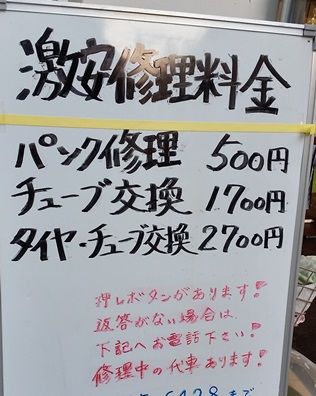 激安修理料金
パンク修理 500円
チューブ交換 1700円
タイヤ・チューブ交換 2700円
押しボタンがあります!
返答がない場合は
下記へお電話下さい!
修理中の代車あります!